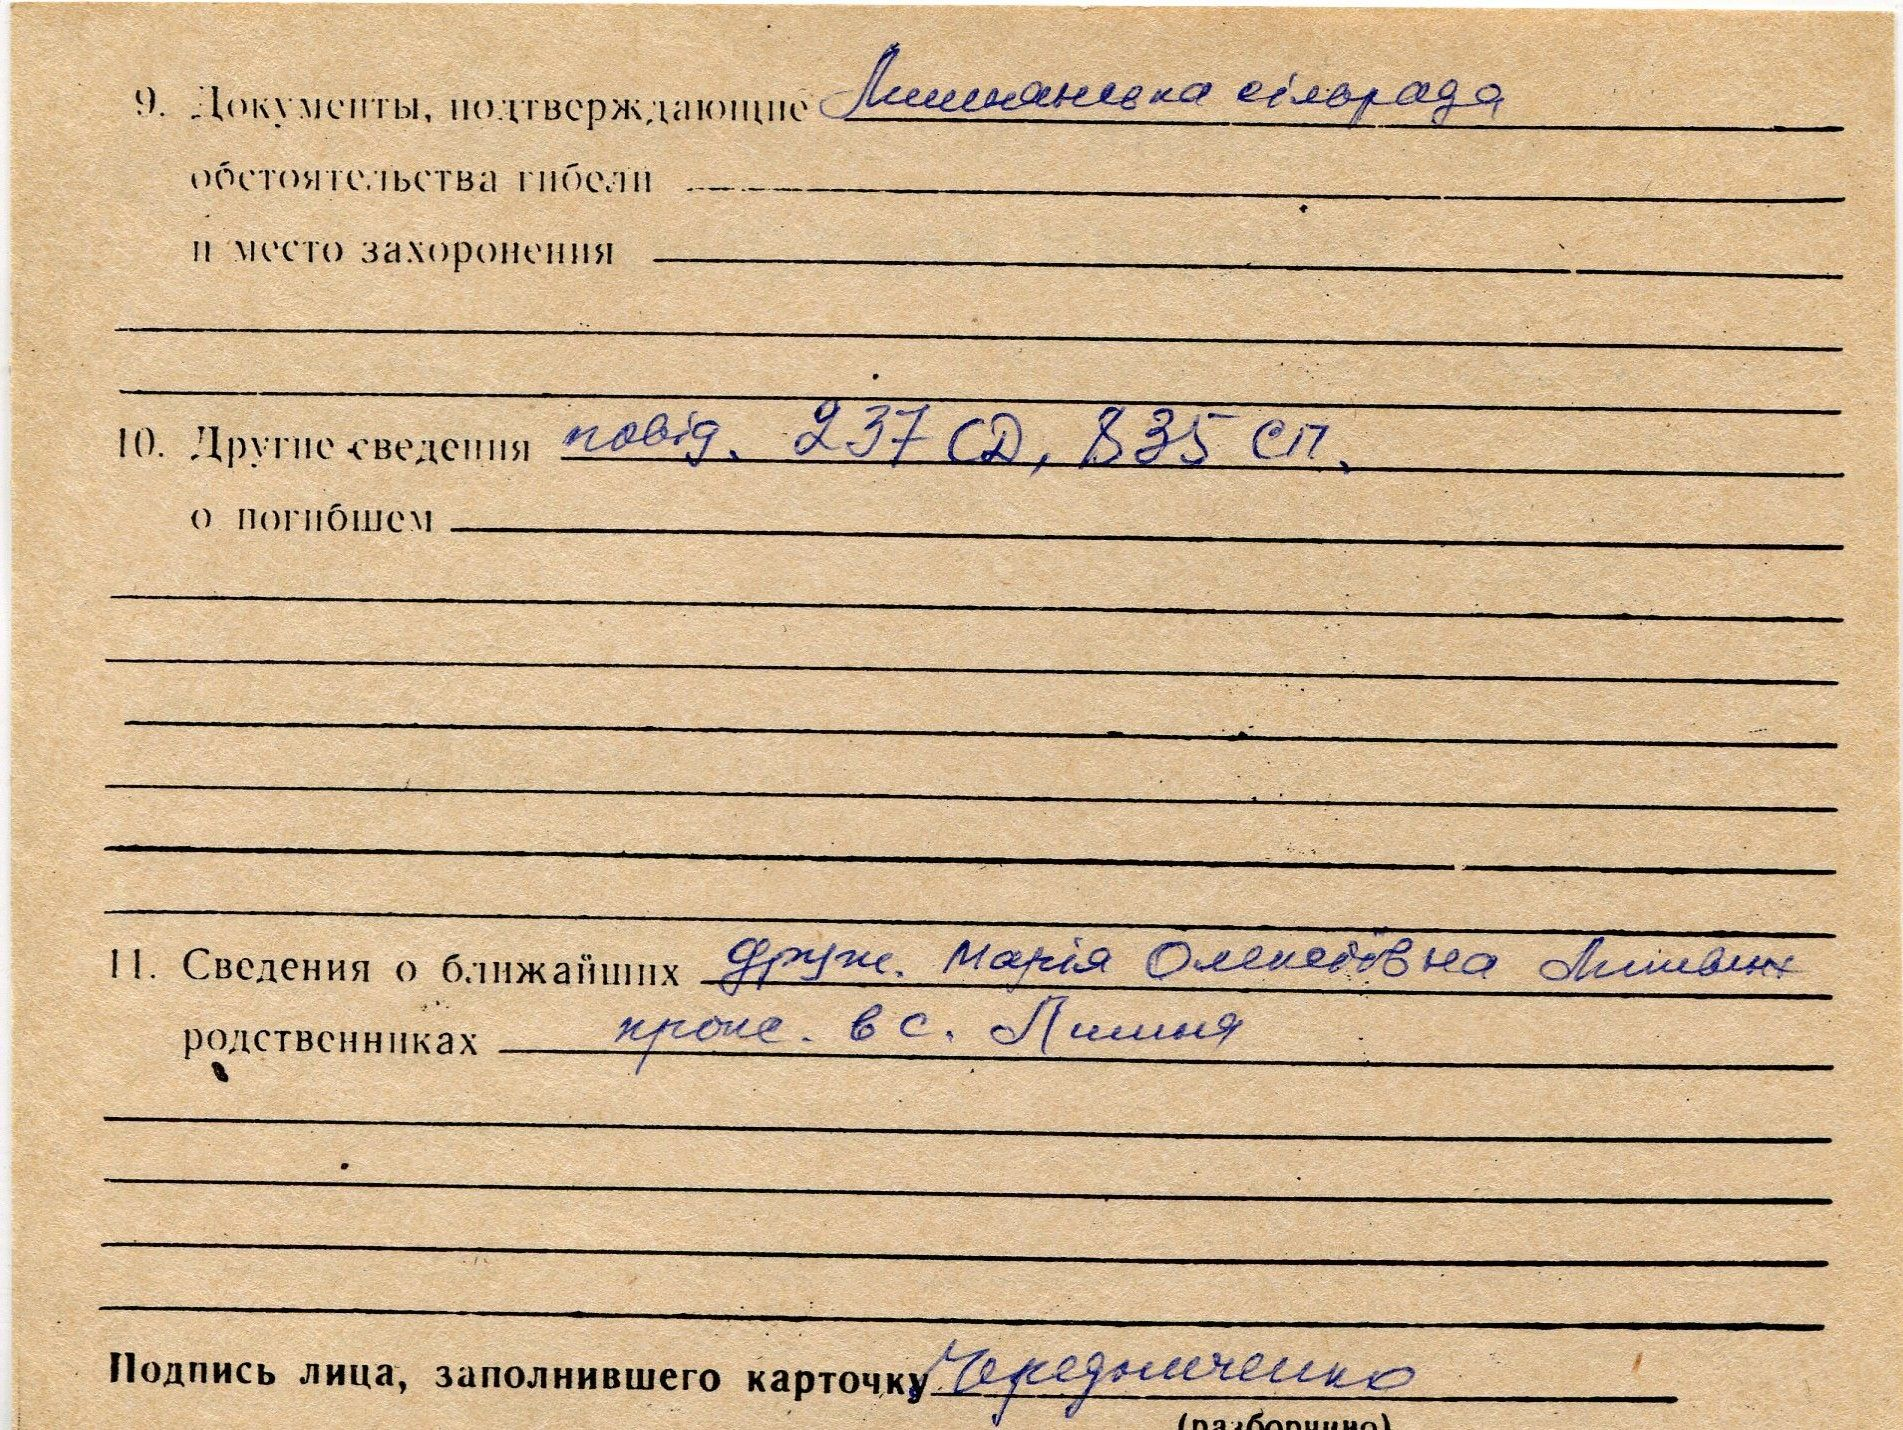 9. Документы, подтверждающие Лишнянська сільрада
обстоятельства гибели
и место захоронения
10. Другие сведения повід. 237 СД, 835 СП.
о погибшем
11. Сведения о ближайших друж. Марія Олексіївна Литвин
родственниках прож. в с. Лишня
Подпись лица, заполнившего карточку Чередниченко
(разборчиво)